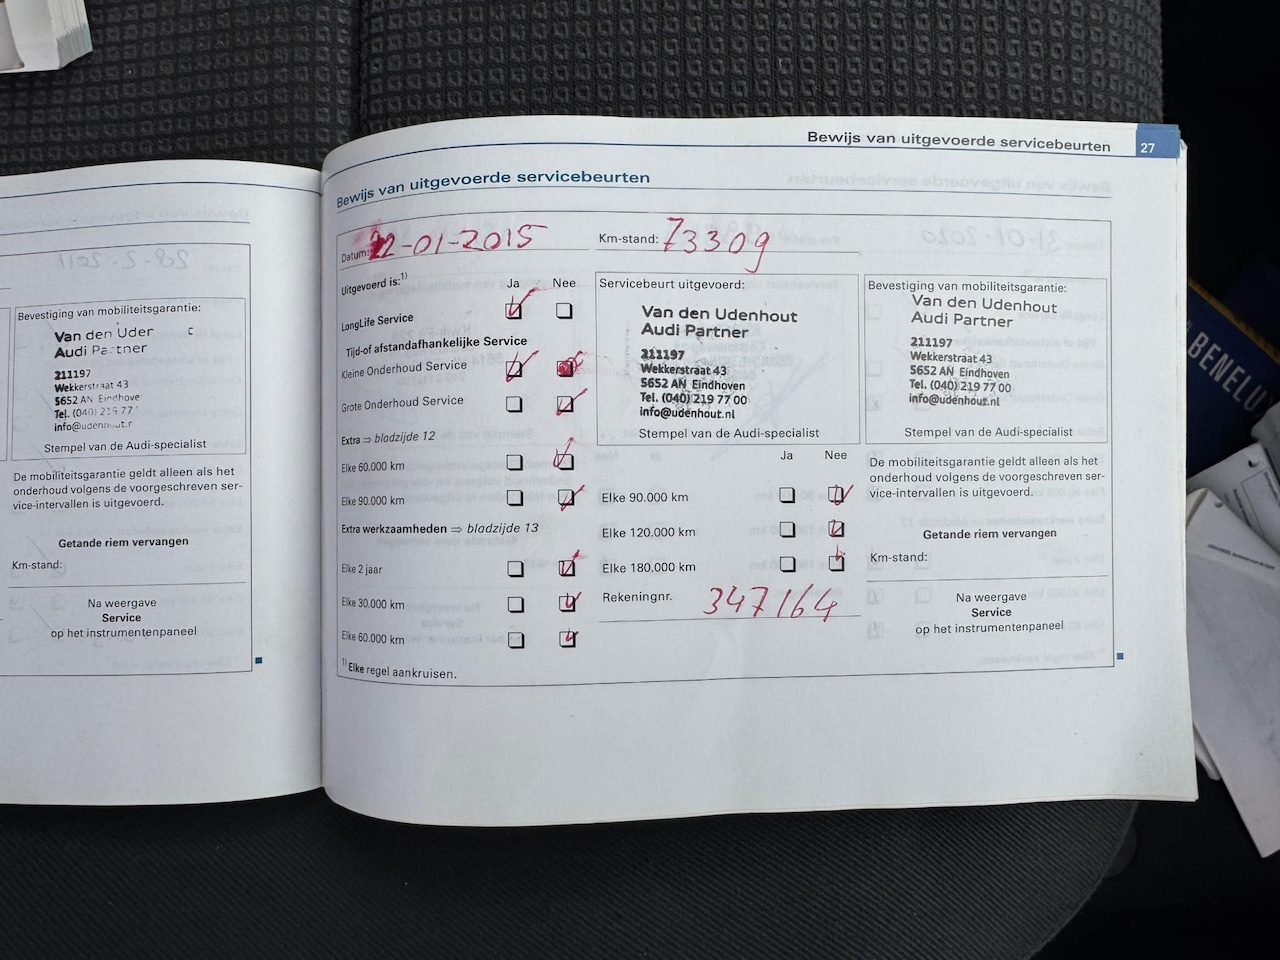 Bevestiging van mobiliteitsgarantie:
Van den Uder
Audi Partner
211197
Wekkerstraat 43
5652 AN Eindhove
Tel. (040) 219 77
Stempel van de Audi-specialist
De mobiliteitsgarantie geldt alleen als het
onderhoud volgens de voorgeschreven ser-
vice-intervallen is uitgevoerd.
Getande riem vervangen
Km-stand:
Na weergave
Service
op het instrumentenpaneel
Bewijs van uitgevoerde servicebeurten 27
Bewijs van uitgevoerde servicebeurten
Datum: 22-01-2015 Km-stand: 73309
Uitgevoerd is:1) Ja Nee
LongLife Service
Tijd-of afstandafhankelijke Service
Kleine Onderhoud Service
Grote Onderhoud Service
Extra ⇒ bladzijde 12
Elke 60.000 km
Elke 90.000 km
Extra werkzaamheden ⇒ bladzijde 13
Elke 2 jaar
Elke 30.000 km
Elke 60.000 km
1) Elke regel aankruisen.
Servicebeurt uitgevoerd:
Van den Udenhout
Audi Partner
211197
Wekkerstraat 43
5652 AN Eindhoven
Tel. (040) 219 77 00
info@udenhout.nl
Stempel van de Audi-specialist
Ja Nee
Elke 90.000 km
Elke 120.000 km
Elke 180.000 km
Rekeningnr. 347164
Bevestiging van mobiliteitsgarantie:
Van den Udenhout
Audi Partner
211197
Wekkerstraat 43
5652 AN Eindhoven
Tel. (040) 219 77 00
info@udenhout.nl
Stempel van de Audi-specialist
De mobiliteitsgarantie geldt alleen als het
onderhoud volgens de voorgeschreven ser-
vice-intervallen is uitgevoerd.
Getande riem vervangen
Km-stand:
Na weergave
Service
op het instrumentenpaneel
BENELU